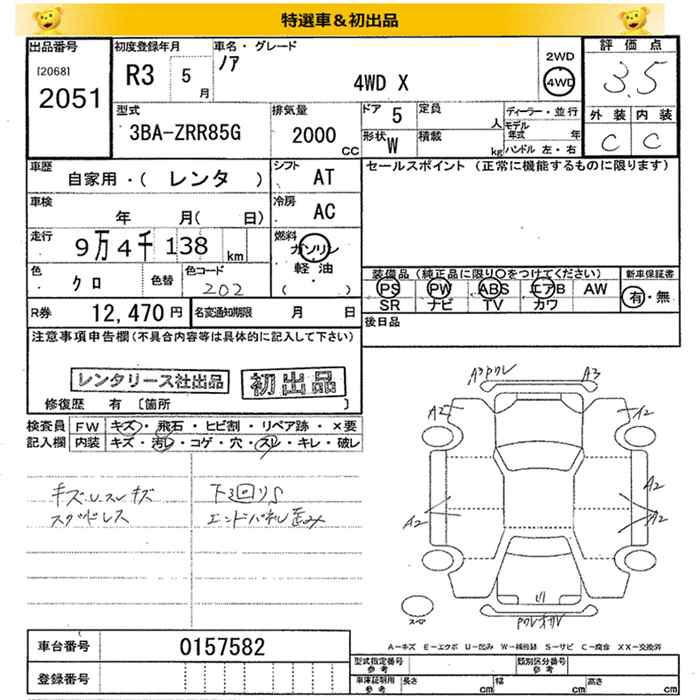 特選車&初出品
出品番号 初度登録年月 車名・グレード 評価点
[2068] R3 5月 ノア 2WD 3.5
2051 4WD X 4WD
外装 内装
型式 排気量 ドア 5 定員 人 ディーラー・並行 C C
3BA-ZRR85G 2000 CC 形状 W 積載 kg モデル年式 年
ハンドル 左・右
車歴 シフト セールスポイント (正常に機能するものに限ります)
自家用・( レンタ ) AT
車検 冷房
年 月( 日) AC
走行 燃料
9万4千138 km ガソリン
軽油
色 色替 色コード 装備品(純正品に限り○をつけてください) 新車保証書
クロ 202 ( ) PS PW ABS エアB AW 有・無
SR ナビ TV カワ
R券 12,470円 名変通知期限 月 日 後日品
注意事項申告欄(不具合内容等は具体的に記入して下さい)
レンタリース社出品 初出品
修復歴 有 [箇所 ]
A3 ワレ A3
A2 A2
検査員 FW キズ・飛石・ヒビ割・リペア跡・×要
記入欄 内装 キズ・汚レ・コゲ・穴・スレ・キレ・破レ
キズ スレキズ 下回りS
スタッドレス エンドパネル歪み
A2 A2
A2
スペア
車台番号 0157582
A-キズ E-エクボ U-凹み W-補修跡 S-サビ C-腐食 XX-交換済
登録番号
型式指定番号 参考 類別区分番号 参考
車庫証明用 参考 長さ cm 幅 cm 高さ cm